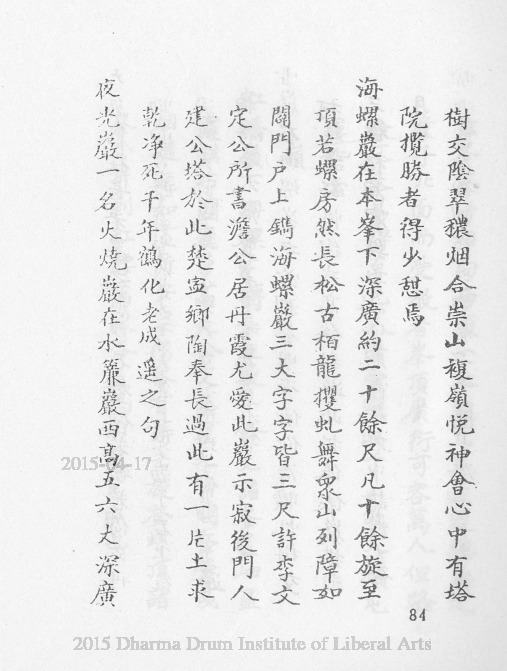 樹交陰翠穠烟合崇山複嶺悅神會心中有塔
院攬勝者得少憇焉
海螺巖在本峯下深廣約二十餘尺凡十餘旋至
頂若螺房然長松古栢龍攫虬舞衆山列障如
闢門戶上鐫海螺巖三大字字皆三尺許李文
定公所書澹公居丹霞尤愛此巖示寂後門人
建公塔於此楚寍鄉陶奉長過此有一片土求
乾净死千年鶴化老成遥之句
夜光巖一名火燒巖在水簾巖西高五六丈深廣
84
2015-04-17
2015 Dharma Drum Institute of Liberal Arts